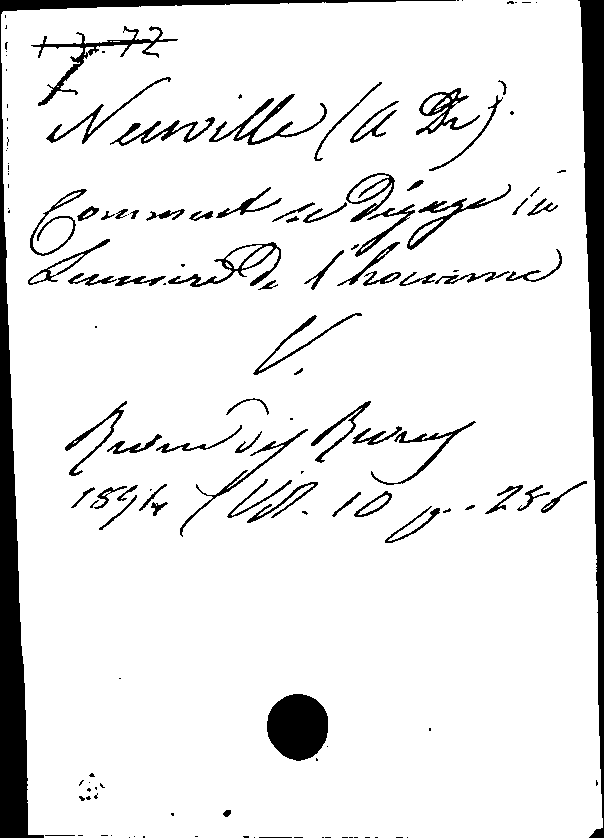 1 3. 72
Neuville (A De).
Comment se Dégage la
Lumière De l'homme
V.
Revue des Revues
1894 Vol. 10 p. 286